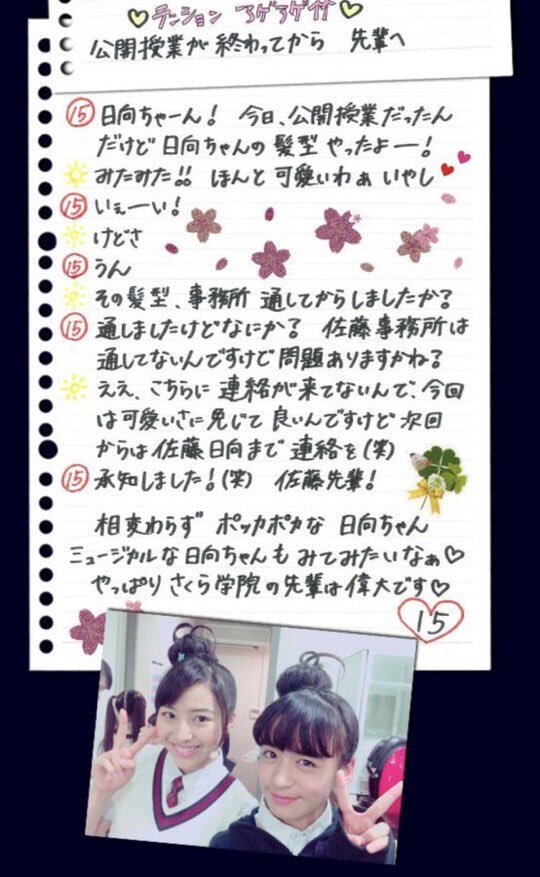 ♡テンション アゲアゲ↑↑♡
公開授業が終わってから 先輩へ
⑮日向ちゃーん! 今日、公開授業だったん
だけど日向ちゃんの髪型やったよー!
みたみた!! ほんと可愛いわぁ いやし
⑮いぇーい!
けどさ
⑮うん
その髪型、事務所 通してからしましたか?
⑮通しましたけどなにか? 佐藤事務所は
通してないんですけど問題ありますかね?
ええ、こちらに連絡が来てないんで、今回
は可愛いさに免じて良いんですけど次回
からは佐藤日向まで連絡を(笑)
⑮承知しました!(笑) 佐藤先輩!
相変わらず ポッカポカな 日向ちゃん
ミュージカルな日向ちゃんも みてみたいなぁ♡
やっぱり さくら学院の先輩は偉大です♡
15